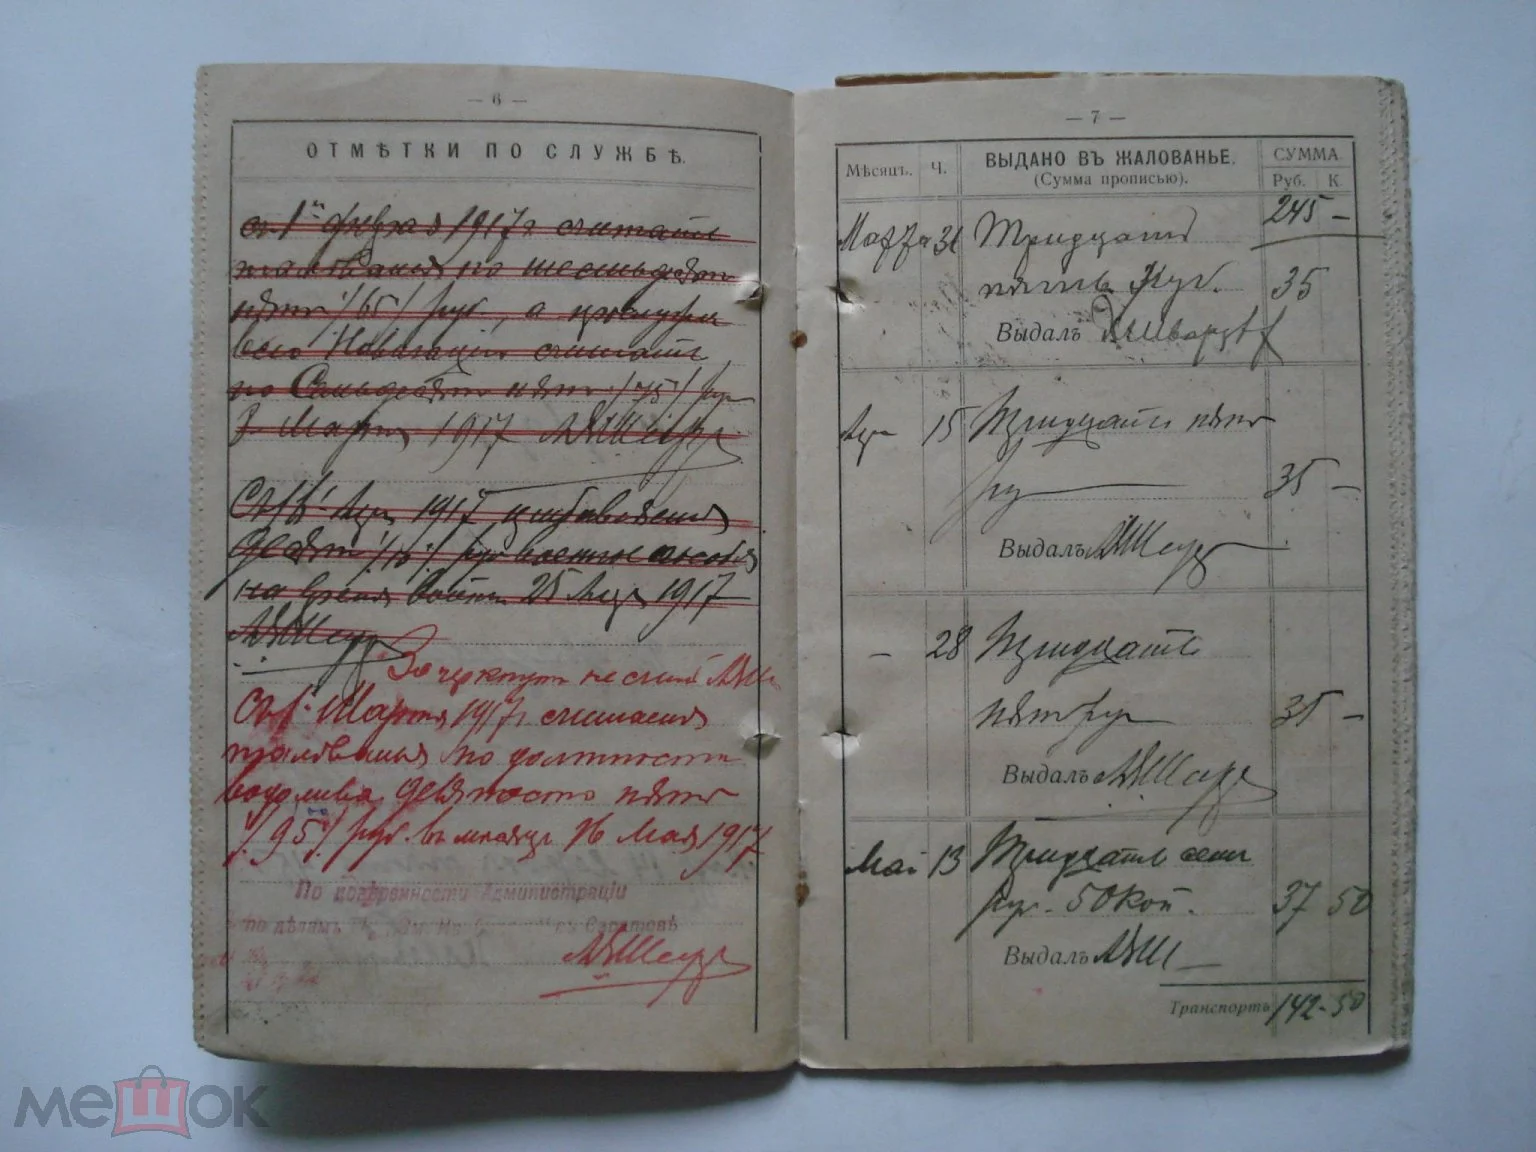 — 6 —
ОТМѢТКИ ПО СЛУЖБѢ.
съ 1го февраля 1917 г считать
жалованья по шестьдесят
пять /65/ руб, а
всю Навигацію считать
по Семьдесят пять /75/ руб
3 Марта 1917
Съ 1 Апр 1917 прибавленія
Десять /10/ руб военное
на время войны 25 Апр 1917
Зачеркнут
Съ 1 Марта 1917 г считается
жалованья по должности
водолива девяносто пять
/95/ руб. въ мѣсяц 16 Мая 1917
По довѣренности Администраціи
по дѣламъ Саратовѣ
— 7 —
Мѣсяцъ. Ч. ВЫДАНО ВЪ ЖАЛОВАНЬЕ. СУММА
(Сумма прописью). Руб. К.
245 —
Марта 31 Тридцать
пять Руб. 35
Выдалъ
Апр 15 Тридцать пять
рус 35 —
Выдалъ
— 28 Тридцать
пять рус 35 —
Выдалъ
Май 13 Тридцать семь
рус. 50 коп. 37 50
Выдалъ
Транспортъ 142-50
мешок